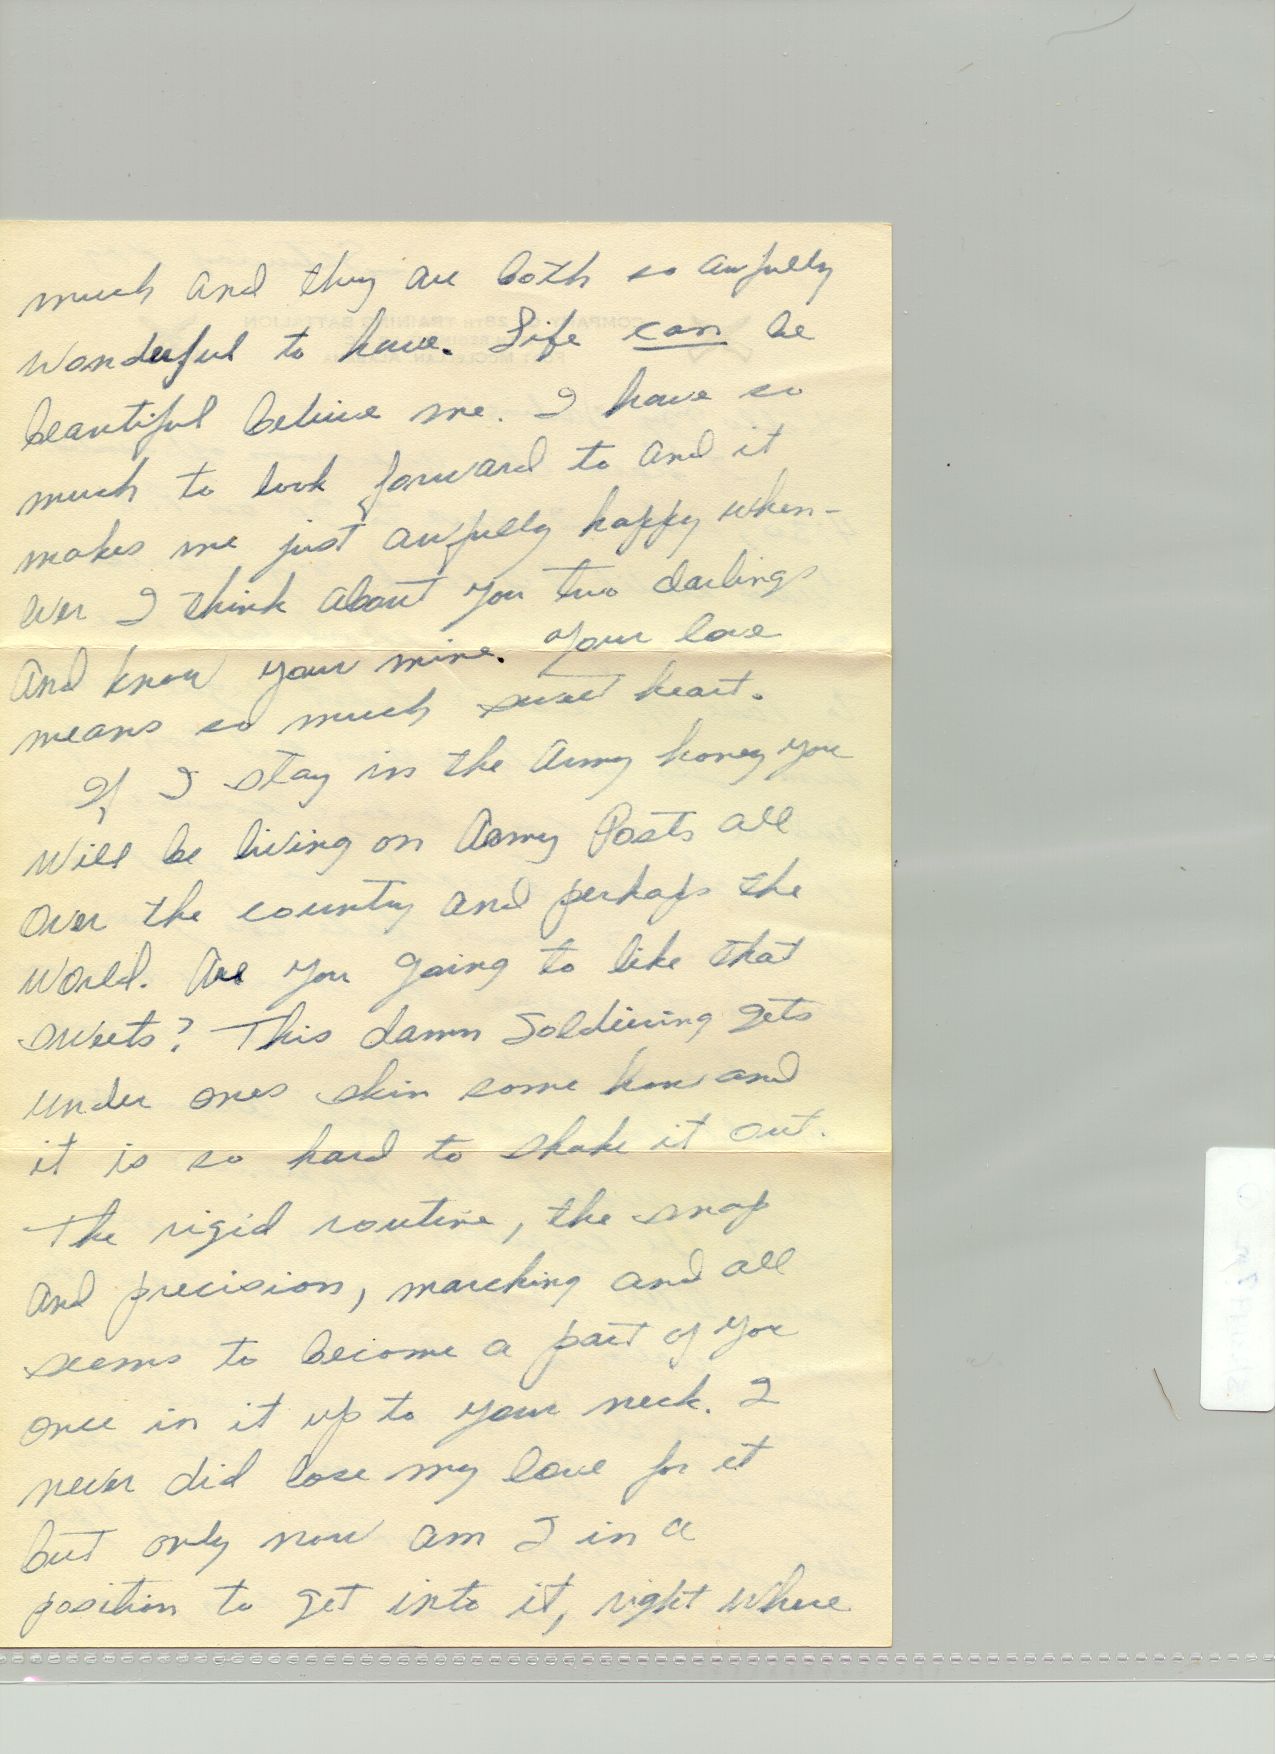 much and they are both so awfully
wonderful to have. Life can be
beautiful believe me. I have so
much to look forward to and it
makes me just awfully happy when-
ever I think about you two darlings
and know your mine. Your love
means so much sweet heart.
If I stay in the Army honey you
will be living on Army Posts all
over the country and perhaps the
world. Are you going to like that
sweets? This damn soldiering gets
under ones skin some how and
it is so hard to shake it out.
The rigid routine, the snap
and precision, marching and all
seems to become a part of you
once in it up to your neck. I
never did lose my love for it
but only now am I in a
position to get into it, right where